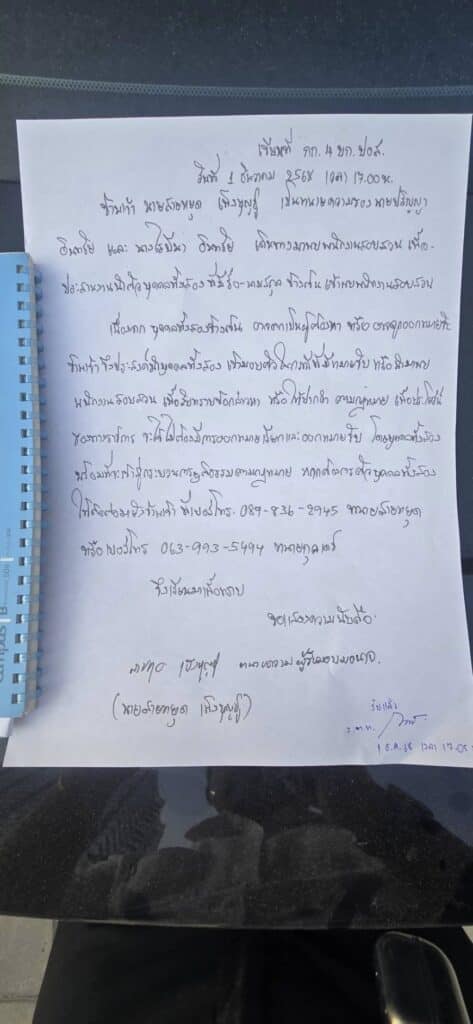 เขียนที่ กก.4 บก.ปอศ.
วันที่ 1 ธันวาคม 2568 เวลา 17.00 น.
ข้าพเจ้า นายสายหยุด เพ็งบุญชู เป็นทนายความของ นายปริญญา
อินทชัย และ เดินทางมาพบพนักงานสอบสวน เพื่อ
ประสานงานนำตัวบุคคลทั้งสอง ที่มีชื่อ-นามสกุล ข้างต้น เข้าพบพนักงานสอบสวน
เนื่องจาก บุคคลทั้งสองข้างต้น อาจตกเป็นผู้ต้องหา หรือ อาจถูกออกหมายจับ
ข้าพเจ้าจึงประสงค์นำบุคคลทั้งสอง เข้ามอบตัวในกรณีที่มีหมายจับ หรือนำมาพบ
พนักงานสอบสวน เพื่อรับทราบข้อกล่าวหา หรือ ให้ปากคำ ตามกฎหมาย เพื่อประโยชน์
ของทางราชการ จะได้ไม่ต้องมีการออกหมายเรียกและออกหมายจับ โดยบุคคลทั้งสอง
พร้อมที่จะเข้าสู่กระบวนการยุติธรรมตามกฎหมาย หากต้องการตัวบุคคลทั้งสอง
ให้ติดต่อมายังข้าพเจ้า ที่เบอร์โทร. 089-836-2945 ทนายสายหยุด
หรือเบอร์โทร 063-993-5494
จึงเรียนมาเพื่อทราบ
ขอแสดงความนับถือ
ทนายความ ผู้รับมอบอำนาจ
(นายสายหยุด เพ็งบุญชู)
รับแล้ว
ร.ต.ท.
1 ธ.ค. 68 เวลา 17.05
campus B